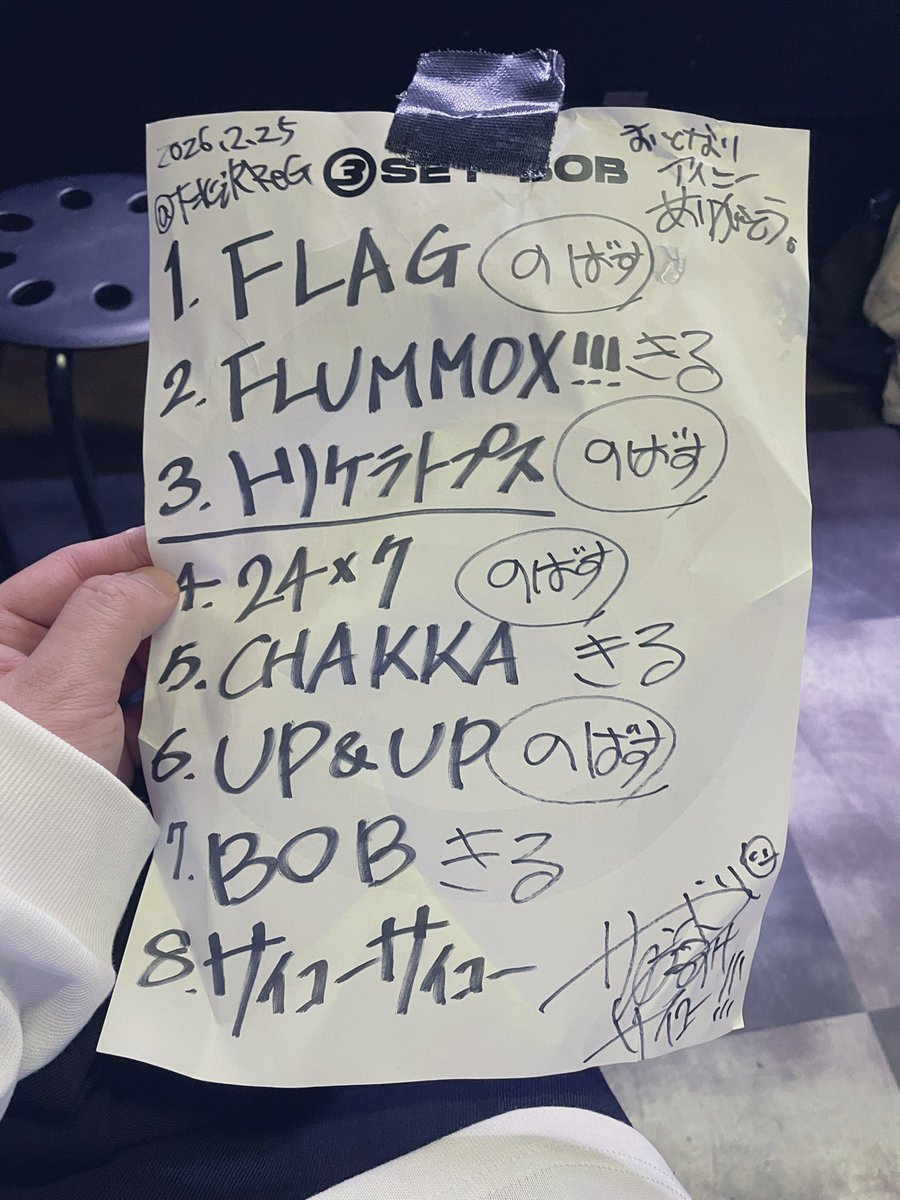 2026.2.25
@下北沢ReG
③SET BOB
おとなり
アイニー
ありがとう。
1. FLAG のばす
2. FLUMMOX!!! きる
3. トリケラトプス のばす
4. 24×7 のばす
5. CHAKKA きる
6. UP&UP のばす
7. BOB きる
8. サイコーサイコー